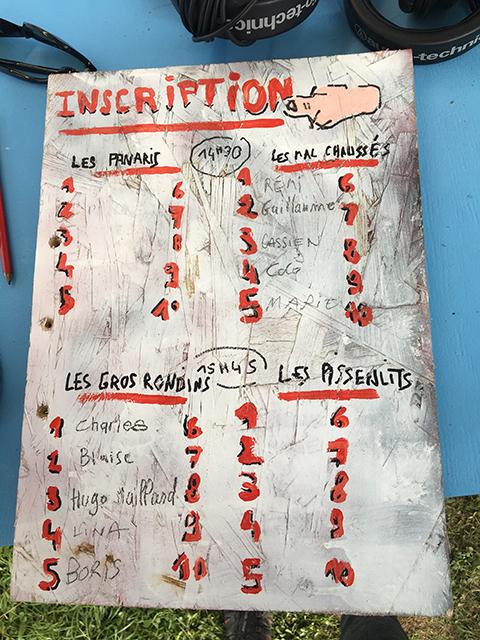 audio-technica
technica
INSCRIPTION
14H30
LES PANARIS
1 6
2 7
3 8
4 9
5 10
LES MAL CHAUSSÉS
1 REMI 6
2 Guillaume 7
3 CASSIEN 8
4 Coco 9
5 MARIE 10
15H45
LES GROS RONDINS
1 Charles 6
2 Blaise 7
3 Hugo Maillard 8
4 LINA 9
5 BORIS 10
LES PISSENLITS
1 6
2 7
3 8
4 9
5 10